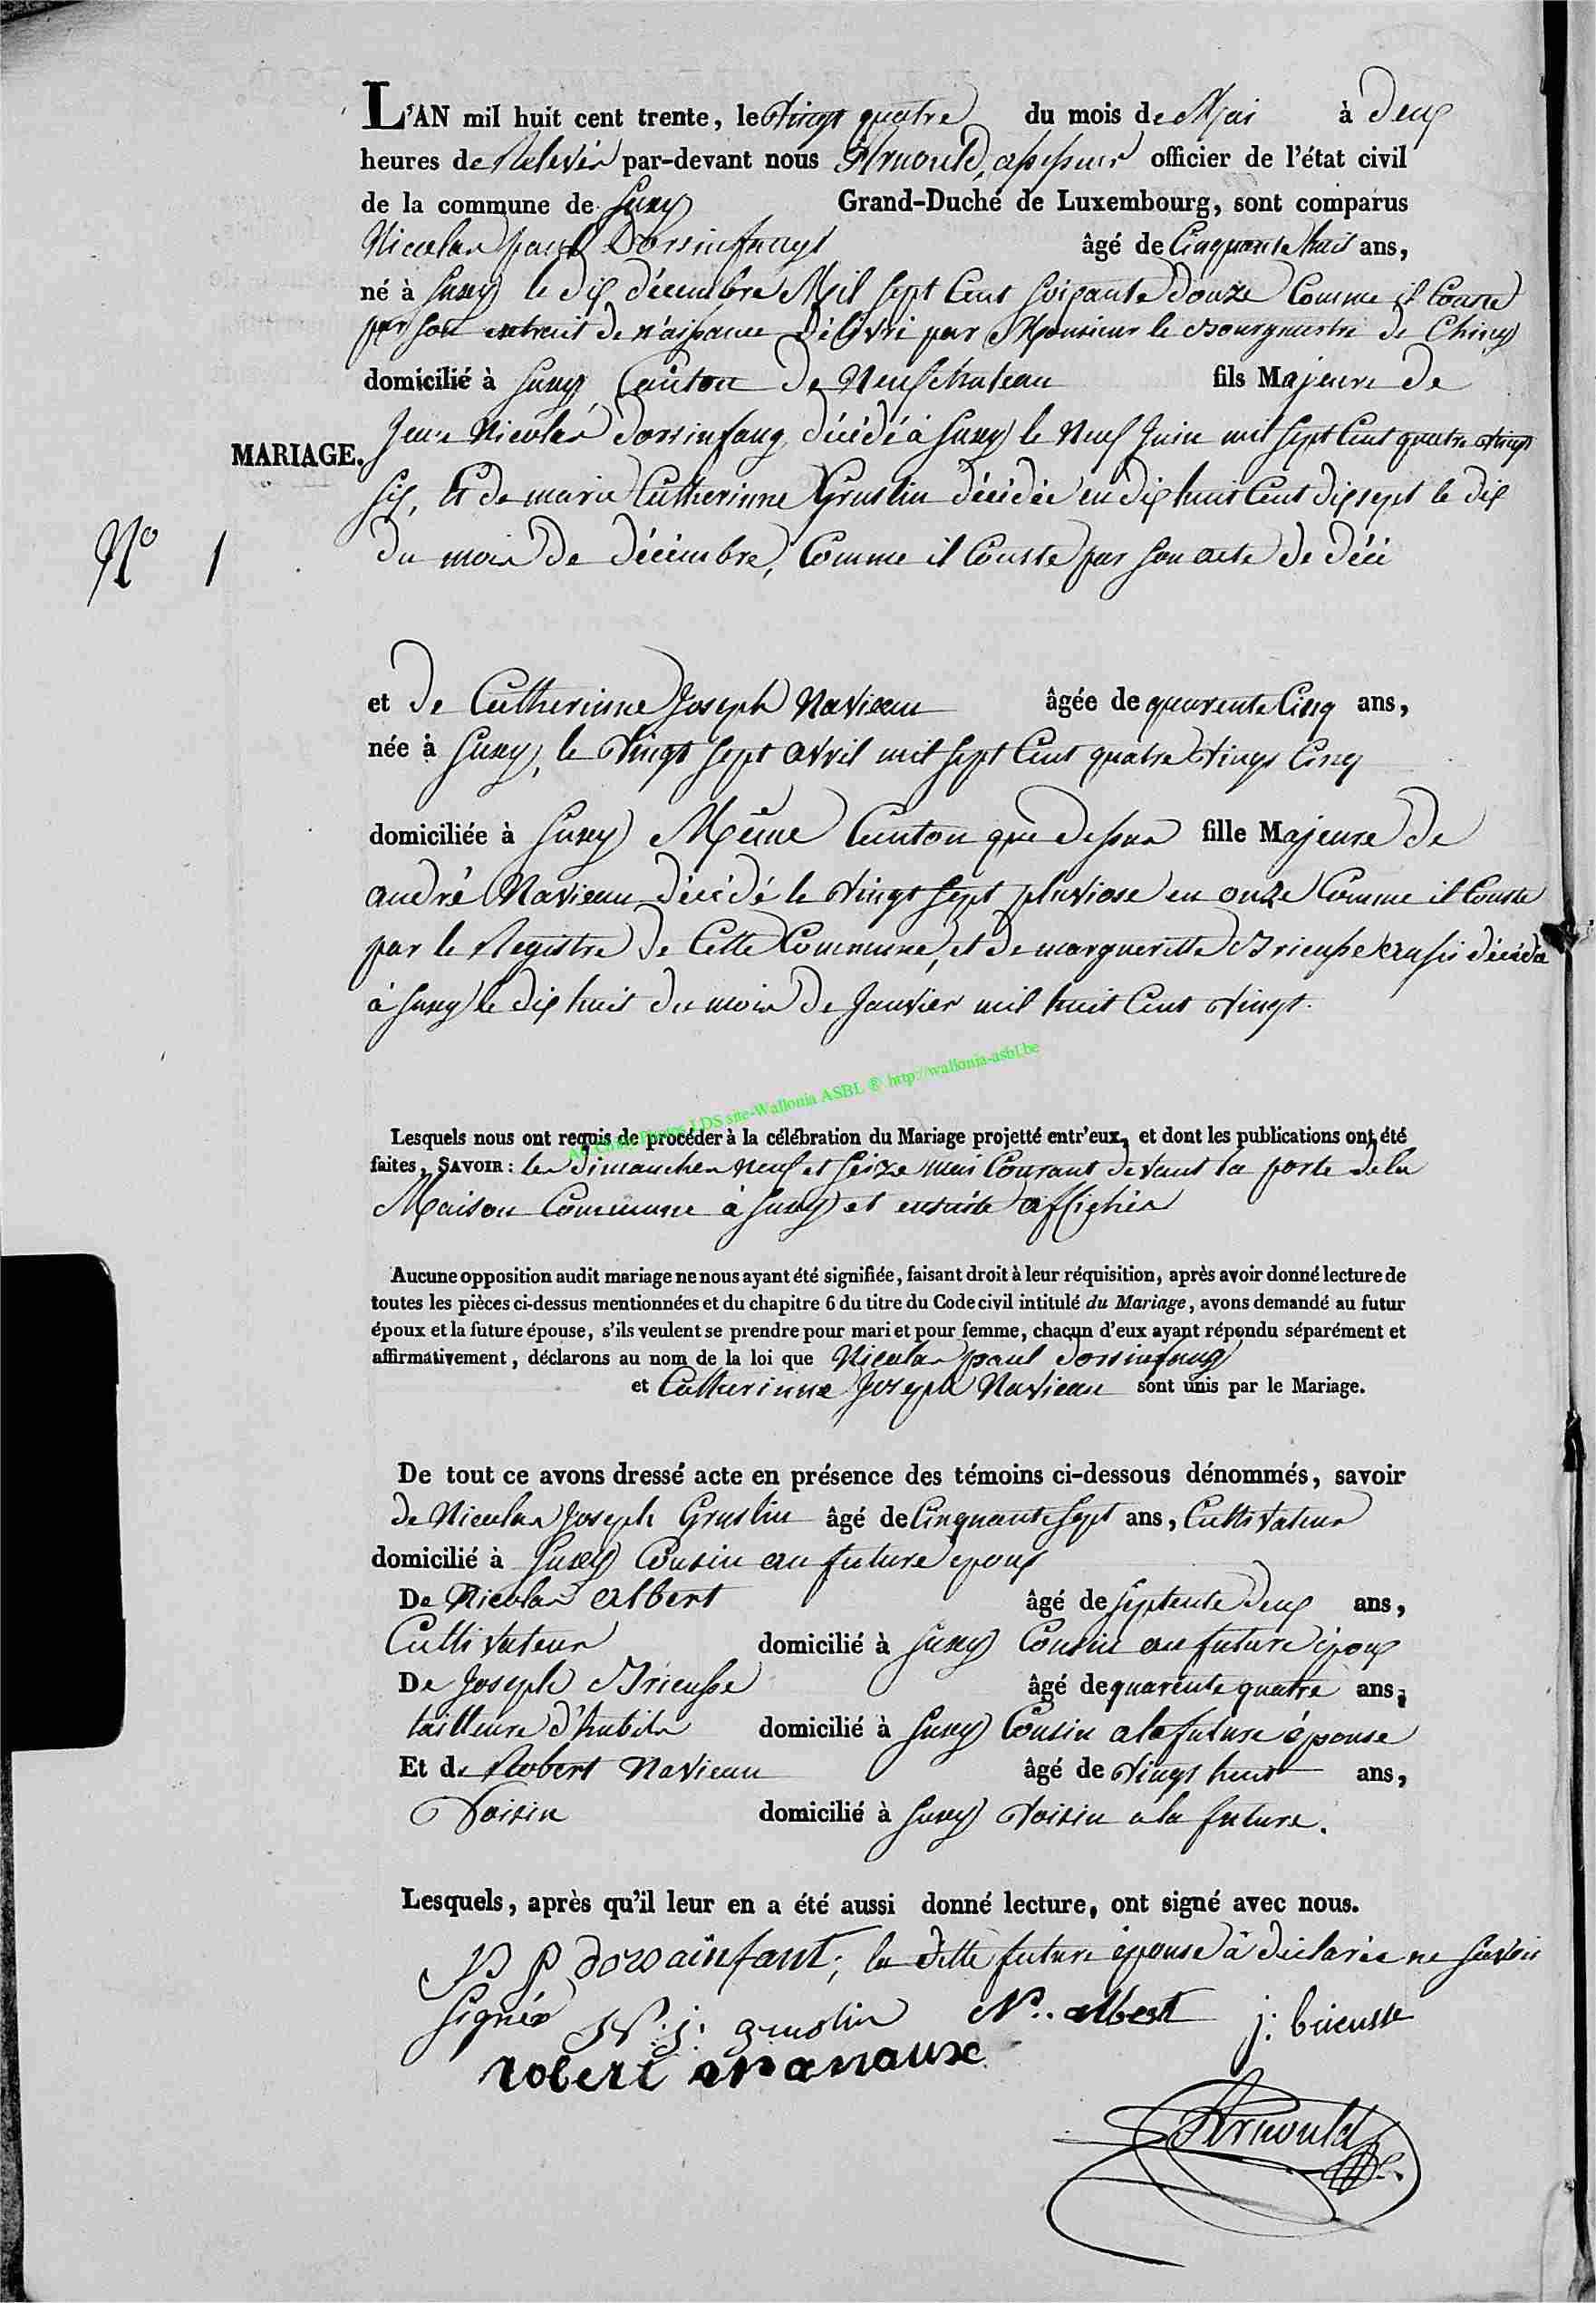 L'AN mil huit cent trente, le vingt quatre du mois de Mai à deux
heures de Relevés par-devant nous Arnould, assesseur officier de l'état civil
de la commune de Suxy Grand-Duché de Luxembourg, sont comparus
Nicolas paul Dorsinfangt âgé de Cinquante huit ans,
né à Suxy le dix décembre Mil sept Cent soixante douze Comme il Conste
par son extrait de n'aissance Délivré par Monsieur le Bourgmestre de Chiny
domicilié à Suxy Canton de Neufchateau fils Majeure de
MARIAGE.
Jean Nicolas dorsinfang, décédé à Suxy le Neuf Juin mil sept Cent quatre vingt
six, Et de marie Catherinne Gruslin décédée en dix huit Cent dix sept le dix
N° 1
du mois de décembre, Comme il Conste par son acte de décè
et de Catherinne Joseph Navieau âgée de quarente Cinq ans,
née à Suxy, le vingt sept avril mil sept Cent quatre vingt Cinq
domiciliée à Suxy Même Canton que dessus fille Majeure de
andré Navieau décédé le vingt sept pluviose en onze Comme il Conste
par le Registre de Cette Commune, et de marguerette Brieusse aussi décédée
à Suxy le dix huit du mois de Janvier mil huit Cent vingt.
AC Chiny Photos LDS site-Wallonia ASBL ® http://wallonia-asbl.be
Lesquels nous ont requis de procéder à la célébration du Mariage projetté entr'eux, et dont les publications ont été
faites, SAVOIR : les dimanches neuf et seize mai Courant devant la porte de la
Maison Commune à Suxy et ensuite affichés
Aucune opposition audit mariage ne nous ayant été signifiée, faisant droit à leur réquisition, après avoir donné lecture de
toutes les pièces ci-dessus mentionnées et du chapitre 6 du titre du Code civil intitulé du Mariage, avons demandé au futur
époux et la future épouse, s'ils veulent se prendre pour mari et pour femme, chacun d'eux ayant répondu séparément et
affirmativement, déclarons au nom de la loi que Nicolas paul dorsinfang
et Catherinne Joseph Navieau sont unis par le Mariage.
De tout ce avons dressé acte en présence des témoins ci-dessous dénommés, savoir
de Nicolas Joseph Gruslin âgé de Cinquante sept ans, Cultivateur
domicilié à Suxy Cousin au future epoux
De Nicolas Albert âgé de septente deux ans,
Cultivateur domicilié à Suxy Cousin au future époux
De Joseph Brieusse âgé de quarente quatre ans,
tailleure d'habits domicilié à Suxy Cousin a la future épouse
Et de Robert Navieau âgé de vingt huit ans,
Voisin domicilié à Suxy voisin a la future.
Lesquels, après qu'il leur en a été aussi donné lecture, ont signé avec nous.
N P dorsainfant; la ditte future épouse à déclarée ne savoir
signér N. j. gruslin N.. albert j: brieusse
robert
Arnould